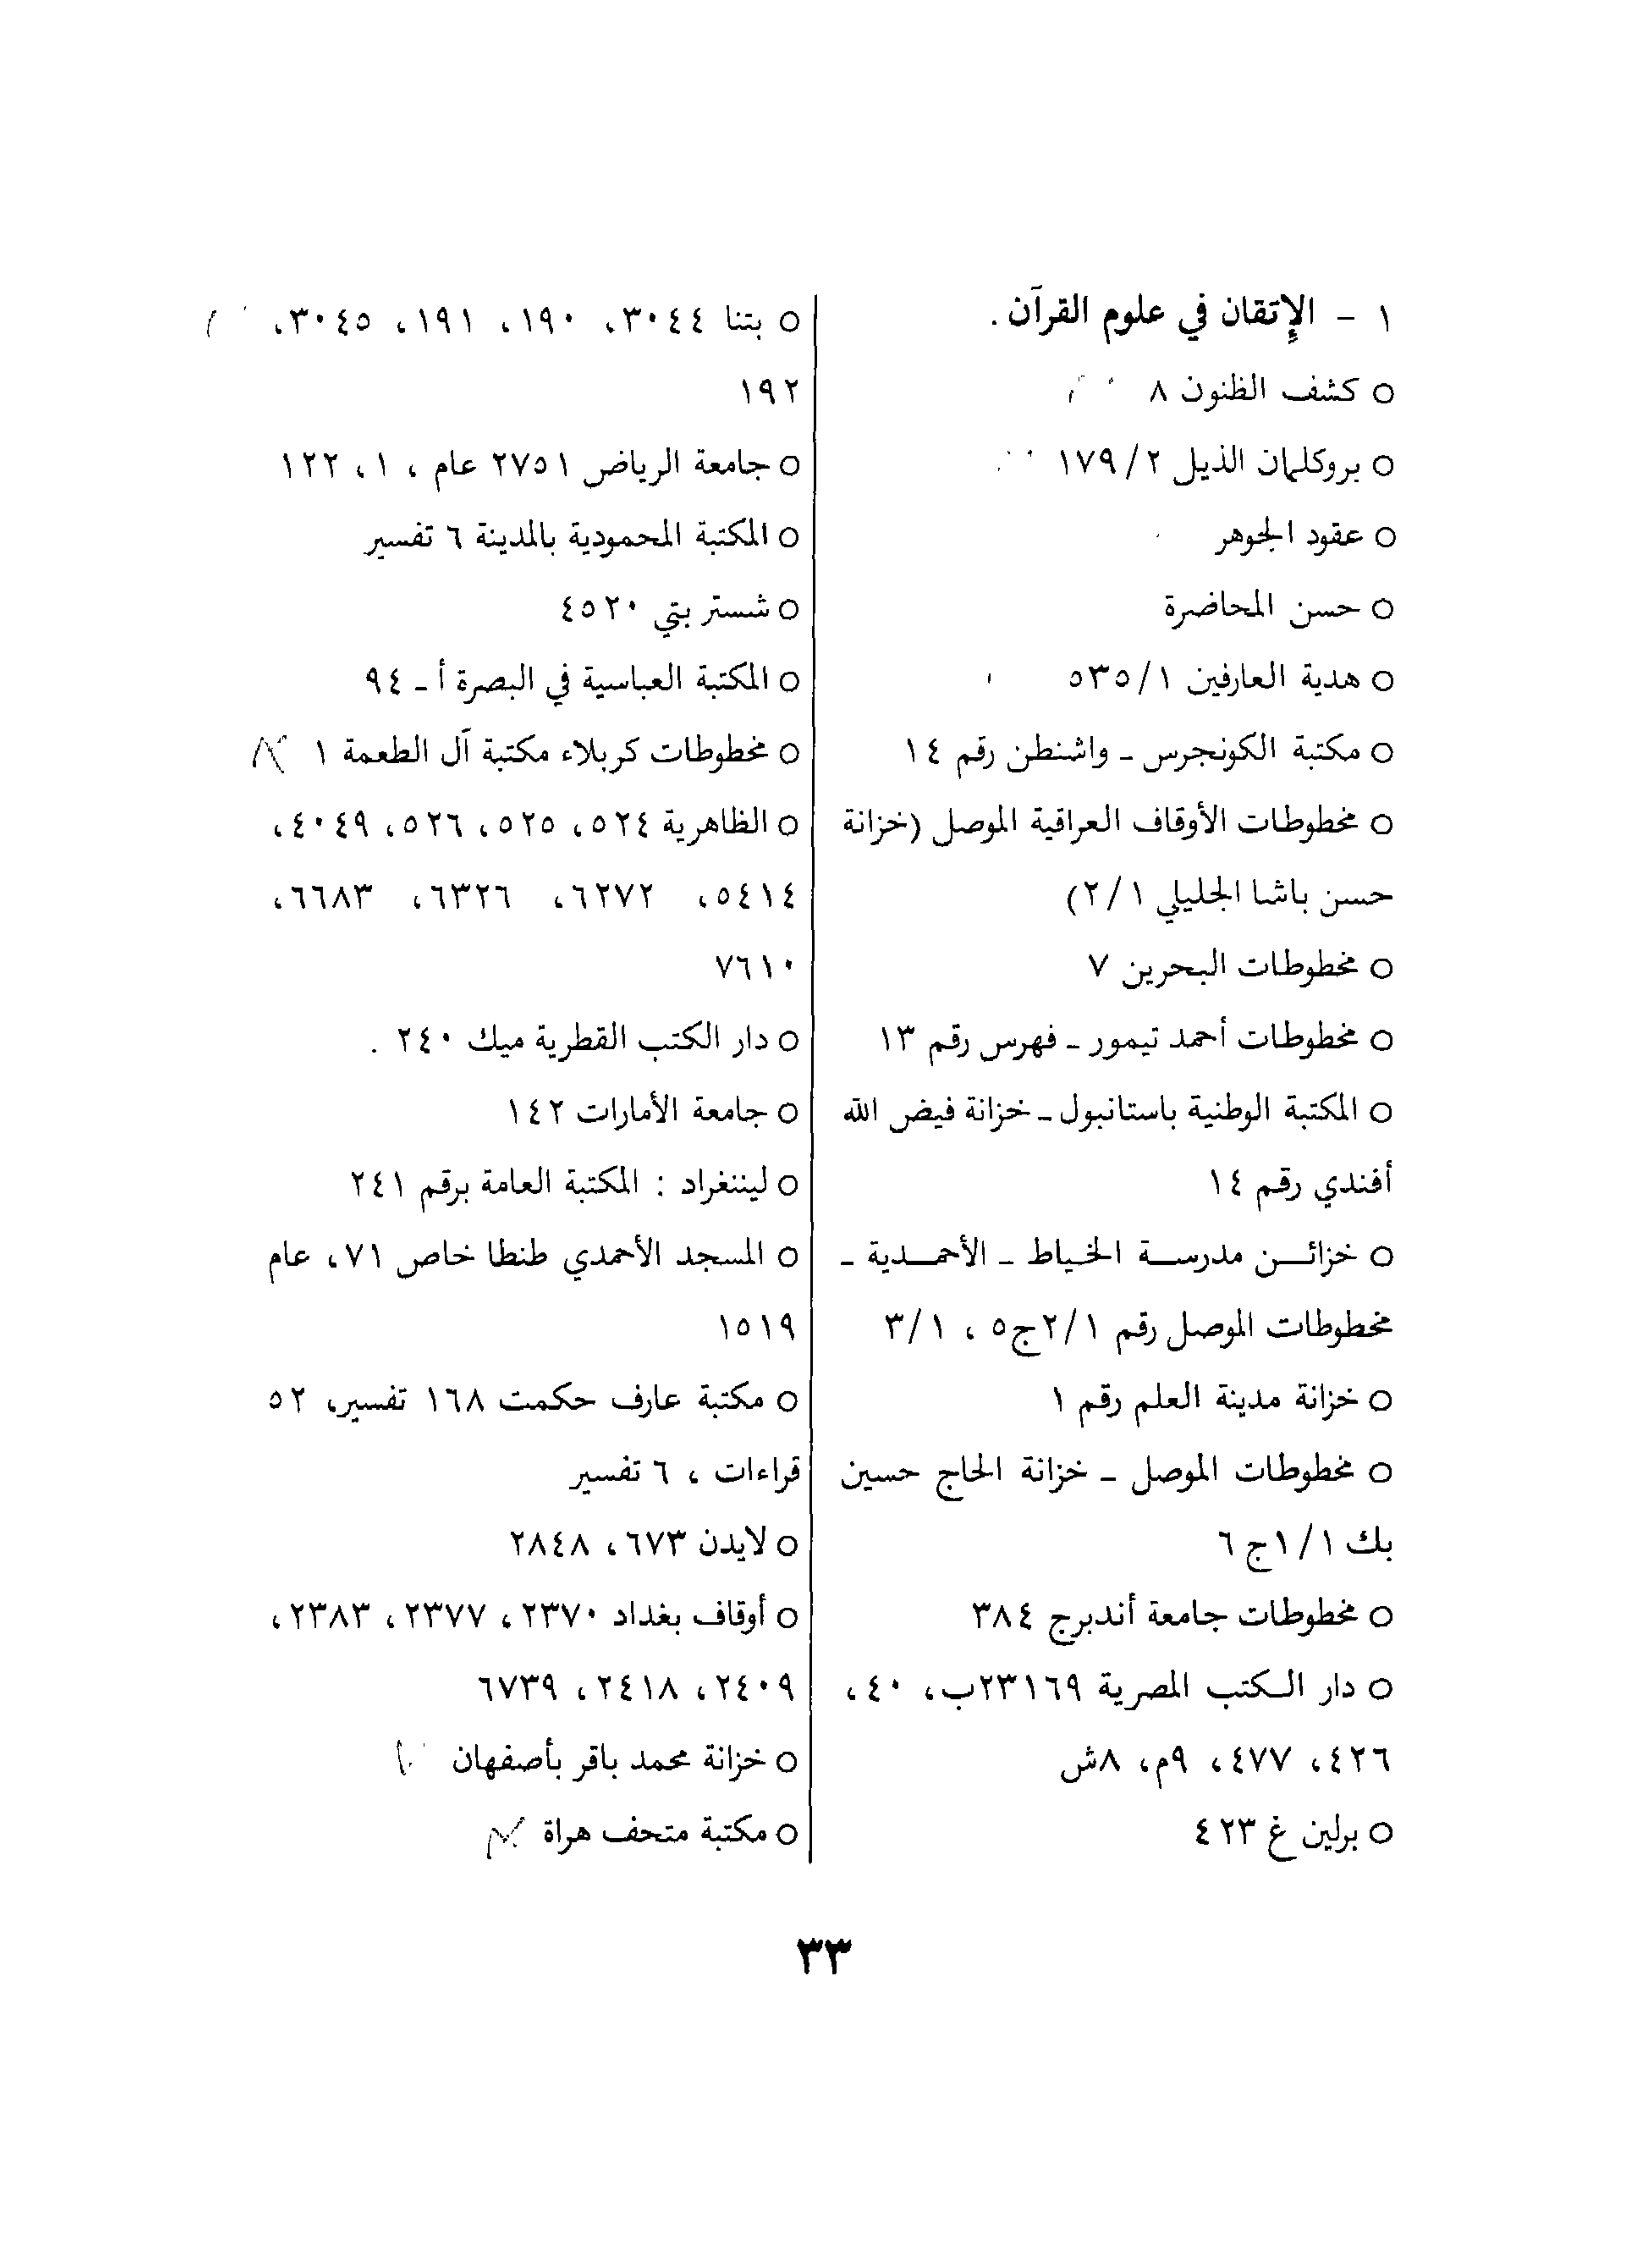 ١ - الإتقان في علوم القرآن .
○ كشف الظنون ٨
○ بروكلمان الذيل ٢/ ١٧٩
○ عقود الجوهر
○ حسن المحاضرة
○ هدية العارفين ١/ ٥٣٥
○ مكتبة الكونجرس ـ واشنطن رقم ١٤
○ مخطوطات الأوقاف العراقية الموصل (خزانة
حسن باشا الجليلي ١/ ٢)
○ مخطوطات البحرين ٧
○ مخطوطات أحمد تيمور ـ فهرس رقم ١٣
○ المكتبة الوطنية باستانبول ـ خزانة فيض الله
أفندي رقم ١٤
○ خزائن مدرسة الخياط ـ الأحمدية ـ
مخطوطات الموصل رقم ١/ ٢ج٥ ، ١/ ٣
○ خزانة مدينة العلم رقم ١
○ مخطوطات الموصل ـ خزانة الحاج حسين
بك ١/ ١ج ٦
○ مخطوطات جامعة أندبرج ٣٨٤
○ دار الكتب المصرية ٢٣١٦٩ب، ٤٠،
٤٢٦، ٤٧٧، ٩م، ٨ش
○ برلين غ ٤٢٣
○ بتنا ٣٠٤٤، ١٩٠، ١٩١، ٣٠٤٥،
١٩٢
○ جامعة الرياض ٢٧٥١ عام ، ١، ١٢٢
○ المكتبة المحمودية بالمدينة ٦ تفسير
○ شستر بتي ٤٥٢٠
○ المكتبة العباسية في البصرة أ ـ ٩٤
○ مخطوطات كربلاء مكتبة آل الطعمة ١
○ الظاهرية ٥٢٤، ٥٢٥، ٥٢٦، ٤٠٤٩،
٥٤١٤، ٦٢٧٢، ٦٣٢٦، ٦٦٨٣،
٧٦١٠
○ دار الكتب القطرية ميك ٢٤٠ .
○ جامعة الأمارات ١٤٢
○ ليننغراد : المكتبة العامة برقم ٢٤١
○ المسجد الأحمدي طنطا خاص ٧١، عام
١٥١٩
○ مكتبة عارف حكمت ١٦٨ تفسير، ٥٢
قراءات ، ٦ تفسير
○ لايدن ٦٧٣، ٢٨٤٨
○ أوقاف بغداد ٢٣٧٠، ٢٣٧٧، ٢٣٨٣،
٢٤٠٩، ٢٤١٨، ٦٧٣٩
○ خزانة محمد باقر بأصفهان
○ مكتبة متحف هراة
٣٣